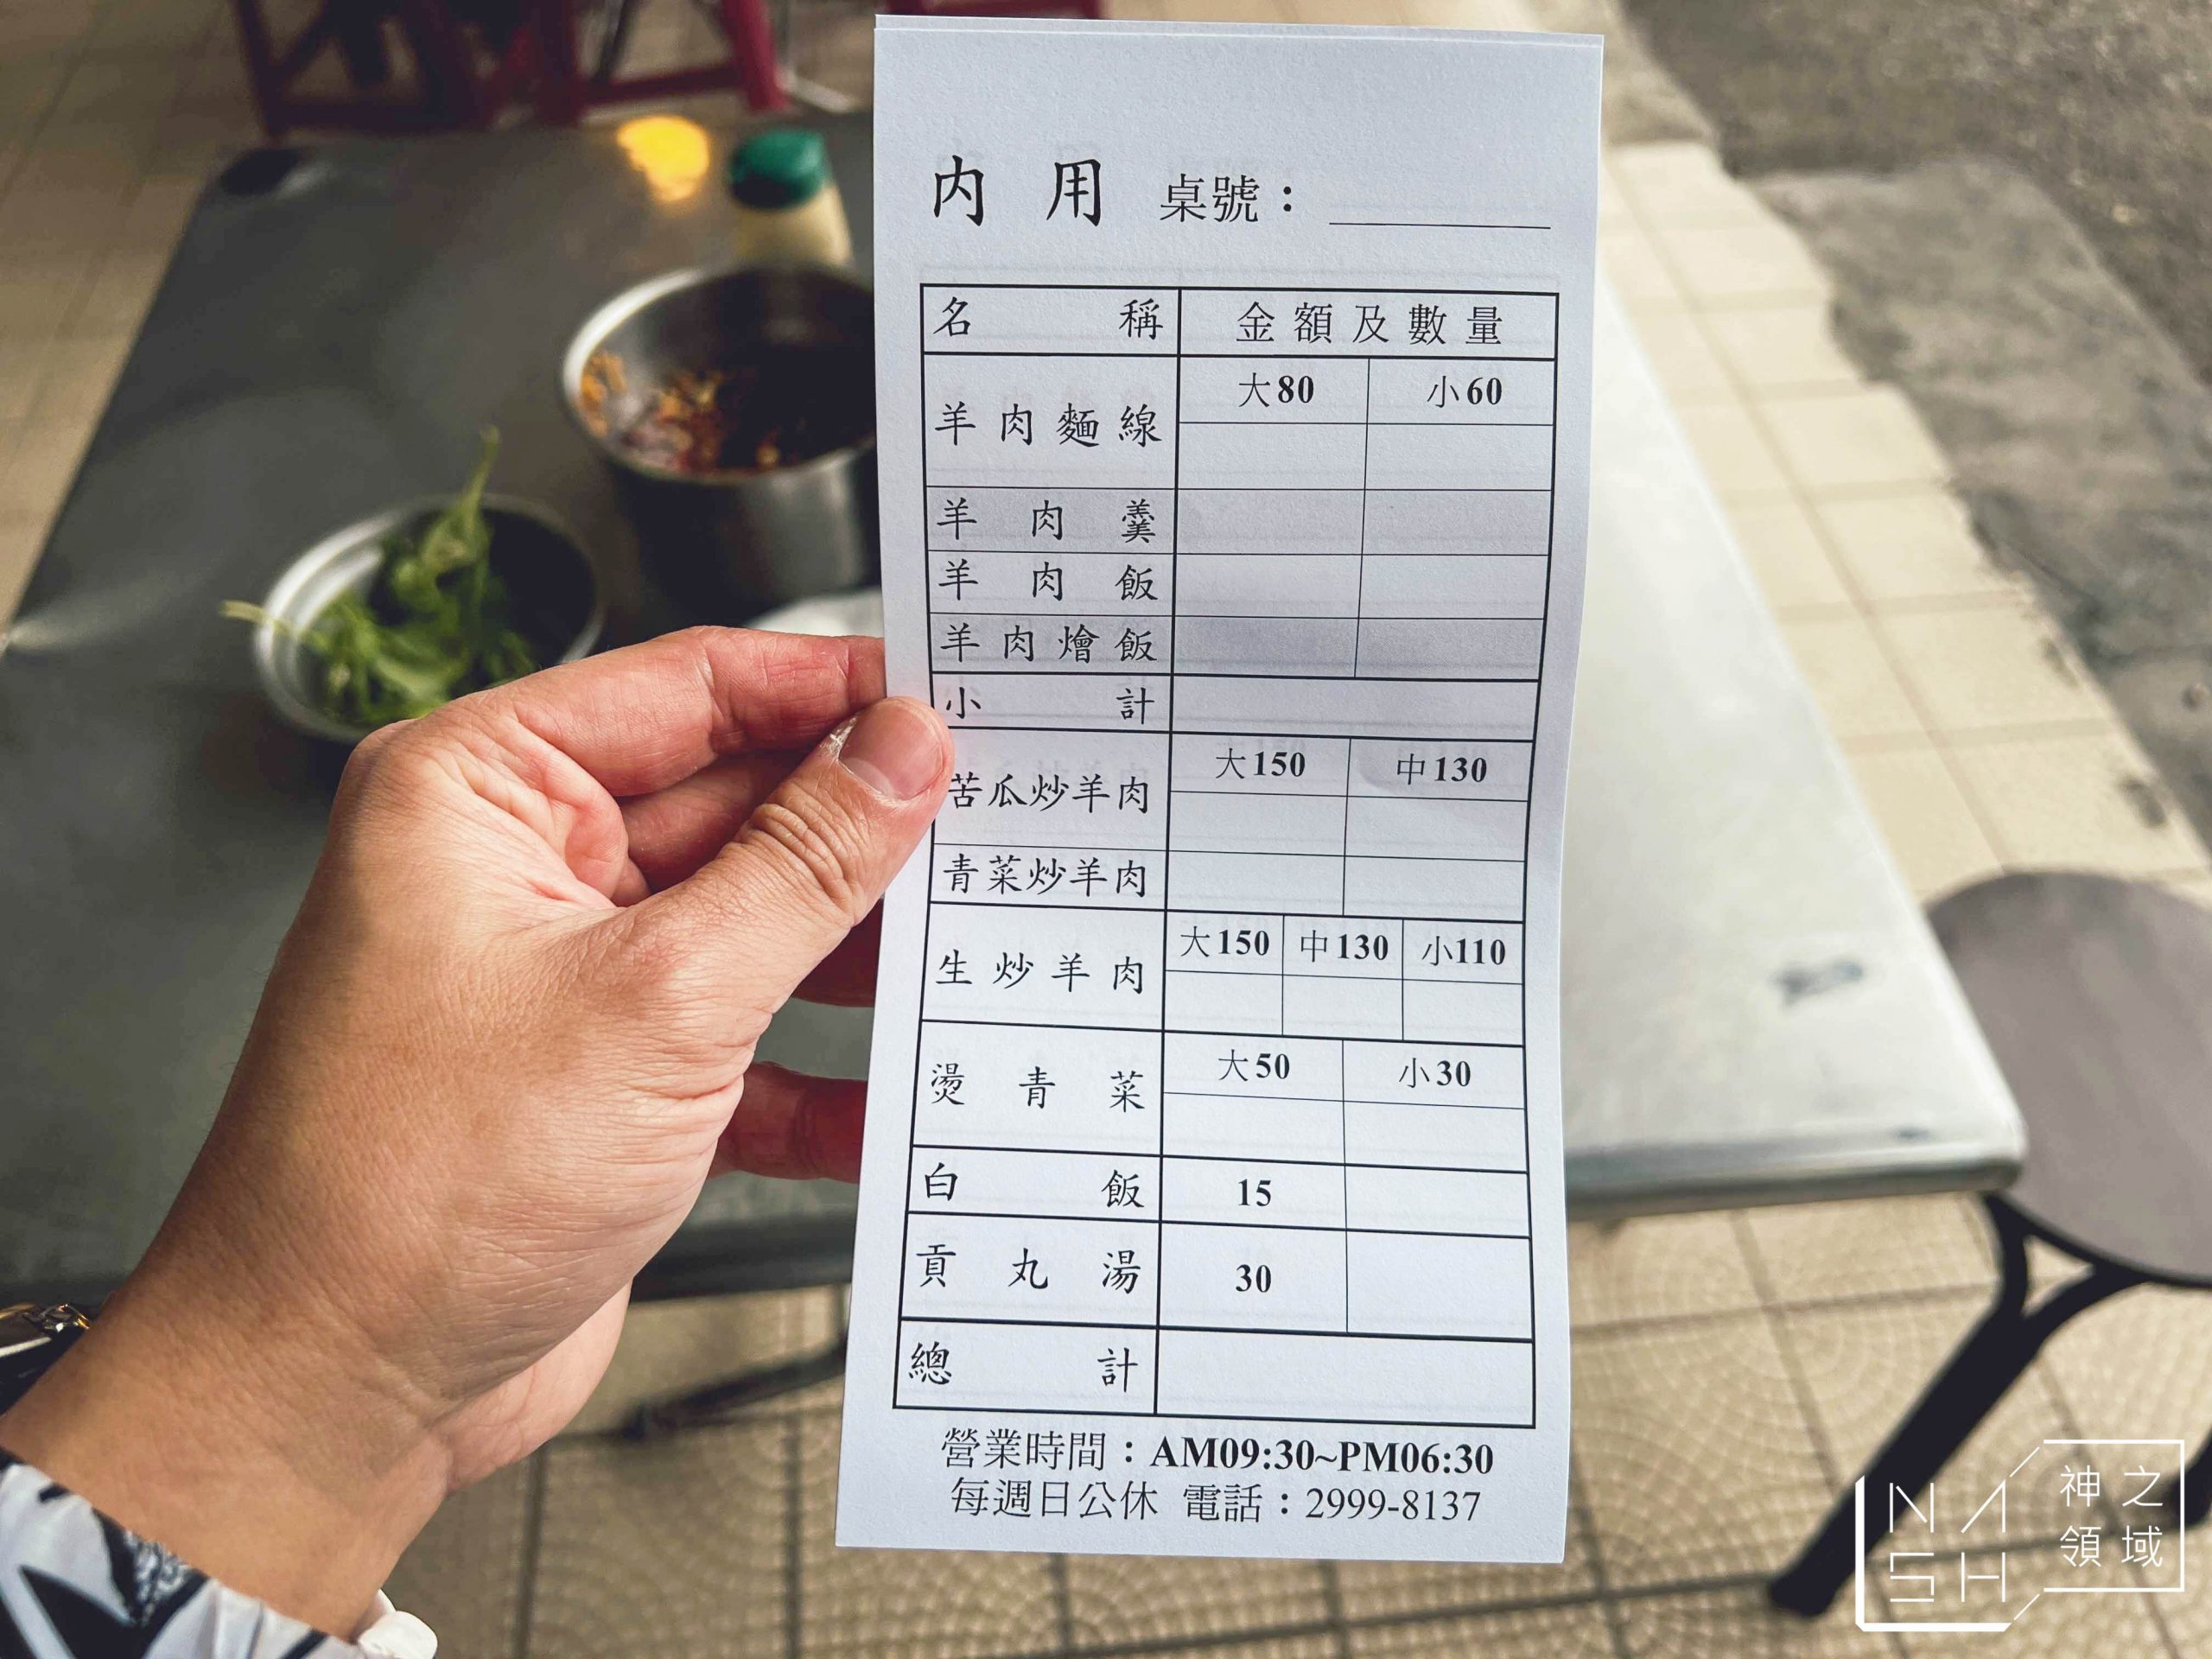 內用 桌號：
名稱 金額及數量
羊肉麵線 大80 小60
羊肉羹
羊肉飯
羊肉燴飯
小計
苦瓜炒羊肉 大150 中130
青菜炒羊肉
生炒羊肉 大150 中130 小110
燙青菜 大50 小30
白飯 15
貢丸湯 30
總計
營業時間：AM09:30~PM06:30
每週日公休 電話：2999-8137
NASH
神之領域